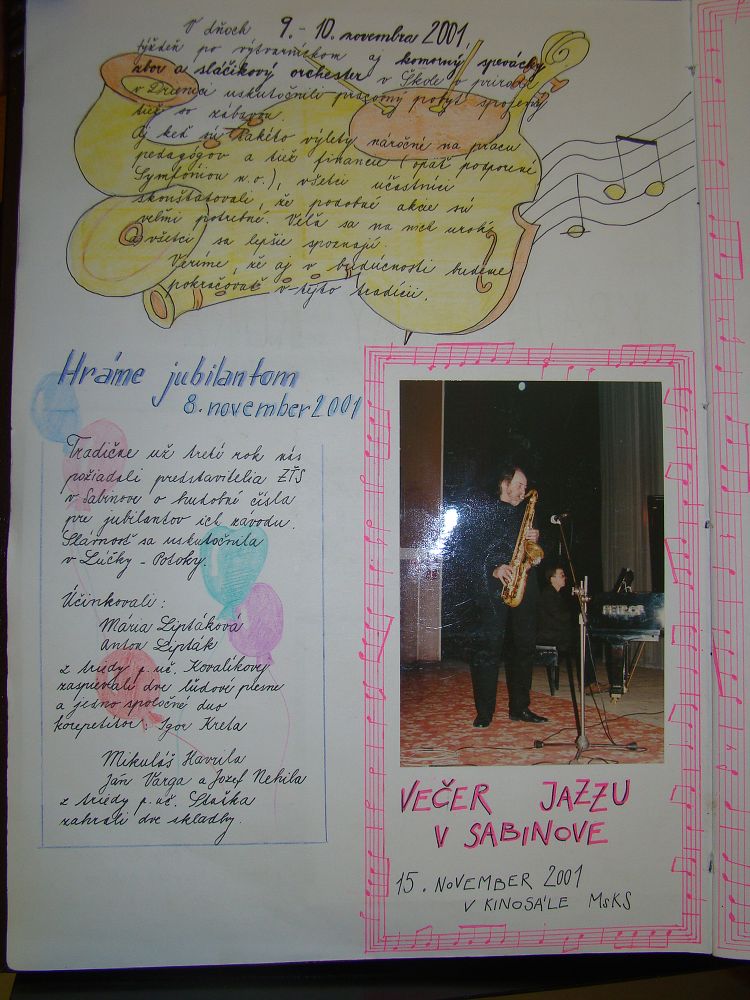 V dňoch 9. - 10. novembra 2001,
týždeň po výtvarníckom aj komorný, spevácky
zbor a sláčikový orchester v Škole v prírode
v Drienici uskutočnili pracovný pobyt spojený
tiež so zábavou.
Aj keď sú takéto výlety náročné na prácu
pedagógov a tiež financie (opäť podporení
Symfóniou n.o.), všetci účastníci
skonštatovali, že podobné akcie sú
veľmi potrebné. Veľa sa na nich urobí
a všetci sa lepšie spoznajú.
Veríme, že aj v budúcnosti budeme
pokračovať v tejto tradícii.
Hráme jubilantom
8. november 2001
Tradične už tretí rok nás
požiadali predstavitelia ZŤS
v Sabinove o hudobné čísla
pre jubilantov ich závodu.
Slávnosť sa uskutočnila
v Lúčky - Potoky.
Účinkovali:
Mária Liptáková
Anton Lipták
z triedy p. uč. Kovalíkovej
zaspievali dve ľudové piesne
a jedno spoločné duo
korepetítor: Igor Kreta
Mikuláš Havrila
Ján Varga a Jozef Nehila
z triedy p. uč. Staška
zahrali dve skladby.
PETROF
VEČER JAZZU
V SABINOVE
15. NOVEMBER 2001
V KINOSÁLE MsKS